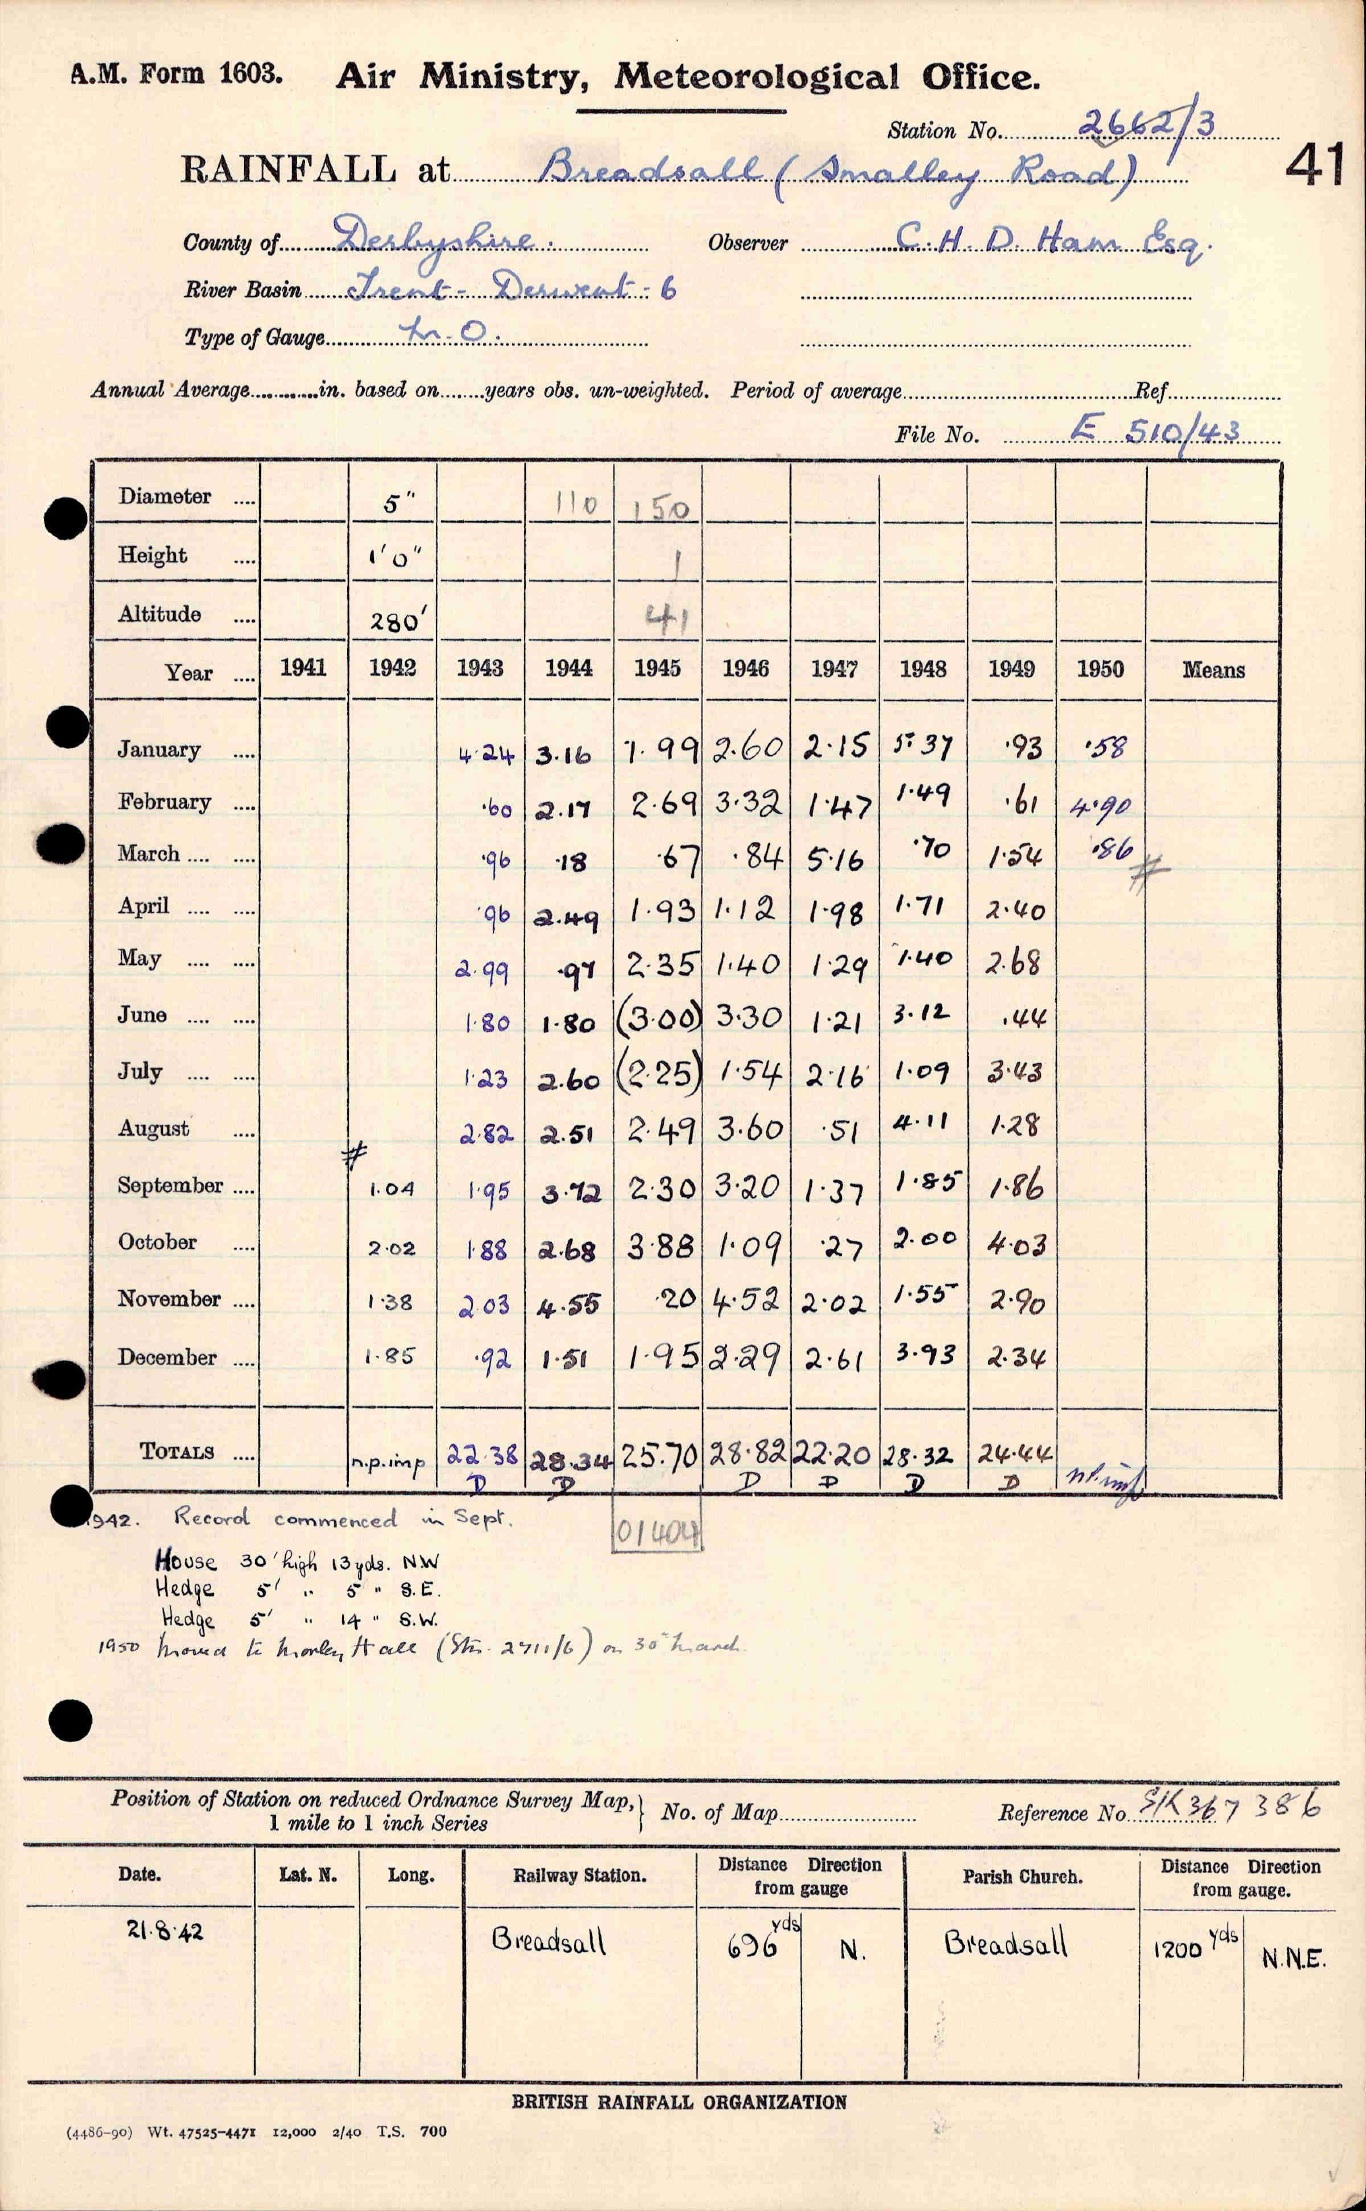 A.M. Form 1603. Air Ministry, Meteorological Office.
Station No. 2662/3
41
RAINFALL at Breadsall (Smalley Road)
County of Derbyshire. Observer C.H.D. Ham Esq.
River Basin Trent - Derwent - 6
Type of Gauge M.O.
Annual Average............in. based on........years obs. un-weighted. Period of average.......... Ref..........
File No. E 510/43
Diameter .... 5" 110 150
Height .... 1'0" 1
Altitude .... 280' 41
Year .... 1941 1942 1943 1944 1945 1946 1947 1948 1949 1950 Means
January .... 4.24 3.16 1.99 2.60 2.15 5.37 .93 .58
February .... .60 2.17 2.69 3.32 1.47 1.49 .61 4.90
March .... .... .96 .18 .67 .84 5.16 .70 1.54 .86 #
April .... .... .96 2.49 1.93 1.12 1.98 1.71 2.40
May .... .... 2.99 .97 2.35 1.40 1.29 1.40 2.68
June .... .... 1.80 1.80 (3.00) 3.30 1.21 3.12 .44
July .... .... 1.23 2.60 (2.25) 1.54 2.16 1.09 3.43
August .... # 2.82 2.51 2.49 3.60 .51 4.11 1.28
September .... 1.04 1.95 3.72 2.30 3.20 1.37 1.85 1.86
October .... 2.02 1.88 2.68 3.88 1.09 .27 2.00 4.03
November .... 1.38 2.03 4.55 .20 4.52 2.02 1.55 2.90
December .... 1.85 .92 1.51 1.95 2.29 2.61 3.93 2.34
TOTALS .... n.p.imp 22.38 28.34 25.70 28.82 22.20 28.32 24.44 n.p.imp
D D D D D D
1942. Record commenced in Sept.
01404
House 30' high 13 yds. NW
Hedge 5' " 5 " S.E.
Hedge 5' " 14 " S.W.
1950 Moved to Morley Hall (Stn. 2711/6) on 30th March
Position of Station on reduced Ordnance Survey Map, } No. of Map.......... Reference No. SK 367 386
1 mile to 1 inch Series
Date. Lat. N. Long. Railway Station. Distance Direction from gauge Parish Church. Distance Direction from gauge.
21.8.42 Breadsall 696 yds N. Breadsall 1200 yds N.N.E.
BRITISH RAINFALL ORGANIZATION
(4486-90) Wt. 47525-4471 12,000 2/40 T.S. 700